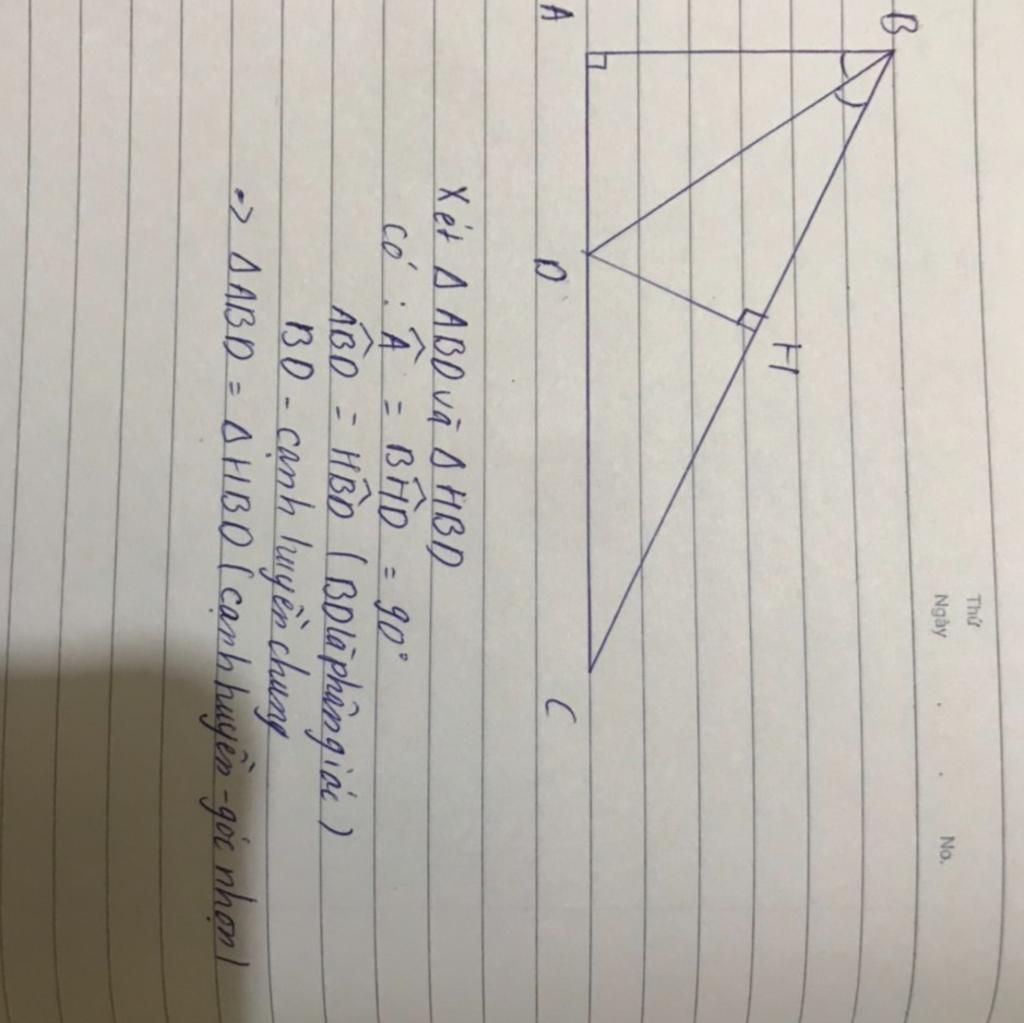 Thứ
Ngày . . No.
B
H
A D C
Xét Δ ABD và Δ HBD
Có : Â = BĤD = 90°
AB̂D = HB̂D ( BD là phân giác )
BD - cạnh huyền chung
=> Δ ABD = Δ HBD ( cạnh huyền - góc nhọn )